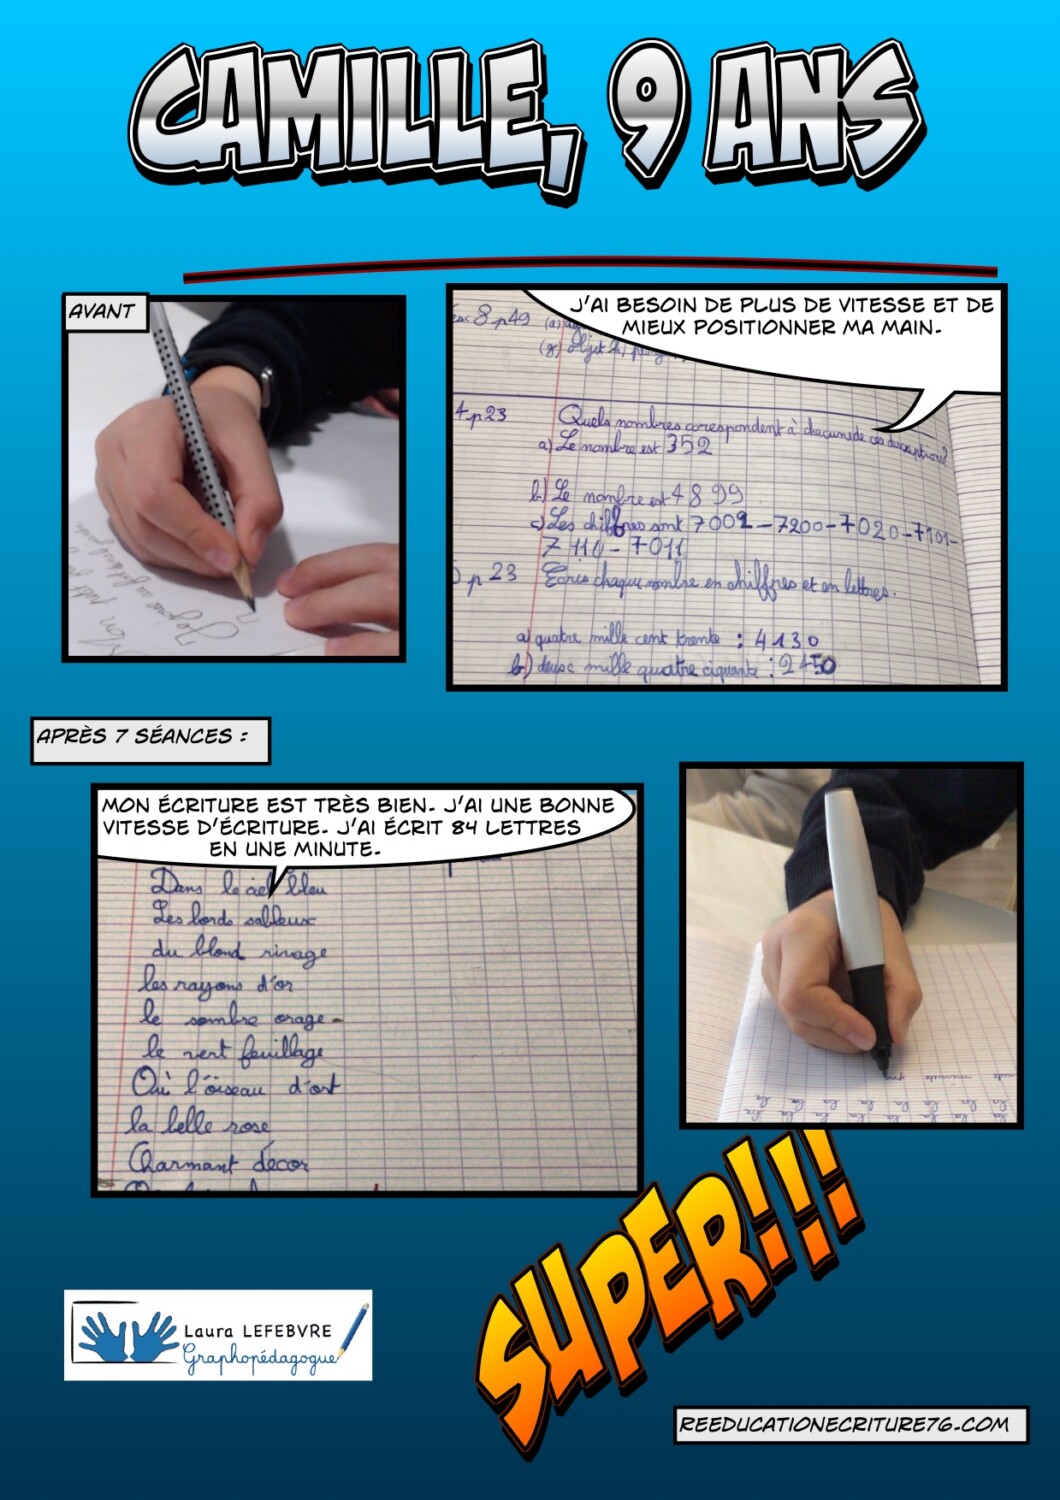 CAMILLE, 9 ANS
AVANT
J'AI BESOIN DE PLUS DE VITESSE ET DE
MIEUX POSITIONNER MA MAIN.
8 p49 (a)
(g) objet
4 p23 Quels nombres correspondent à chacune de ces descriptions?
a) Le nombre est 352
b) Le nombre est 4899
c) Les chiffres sont 7002-7200-7020-7101-
7110-7011
p 23 Ecris chaque nombre en chiffres et en lettres.
a) quatre mille cent trente : 4130
b) deux mille quatre ciquante : 2450
APRÈS 7 SÉANCES :
MON ÉCRITURE EST TRÈS BIEN. J'AI UNE BONNE
VITESSE D'ÉCRITURE. J'AI ÉCRIT 84 LETTRES
EN UNE MINUTE.
Dans le ciel bleu
Les bords sableux
du blond rivage
les rayons d'or
le sombre orage
le vert feuillage
Où l'oiseau d'ort
la belle rose
Charmant décor
SUPER!!!
Laura LEFEBVRE
Graphopédagogue
REEDUCATIONECRITURE76.COM